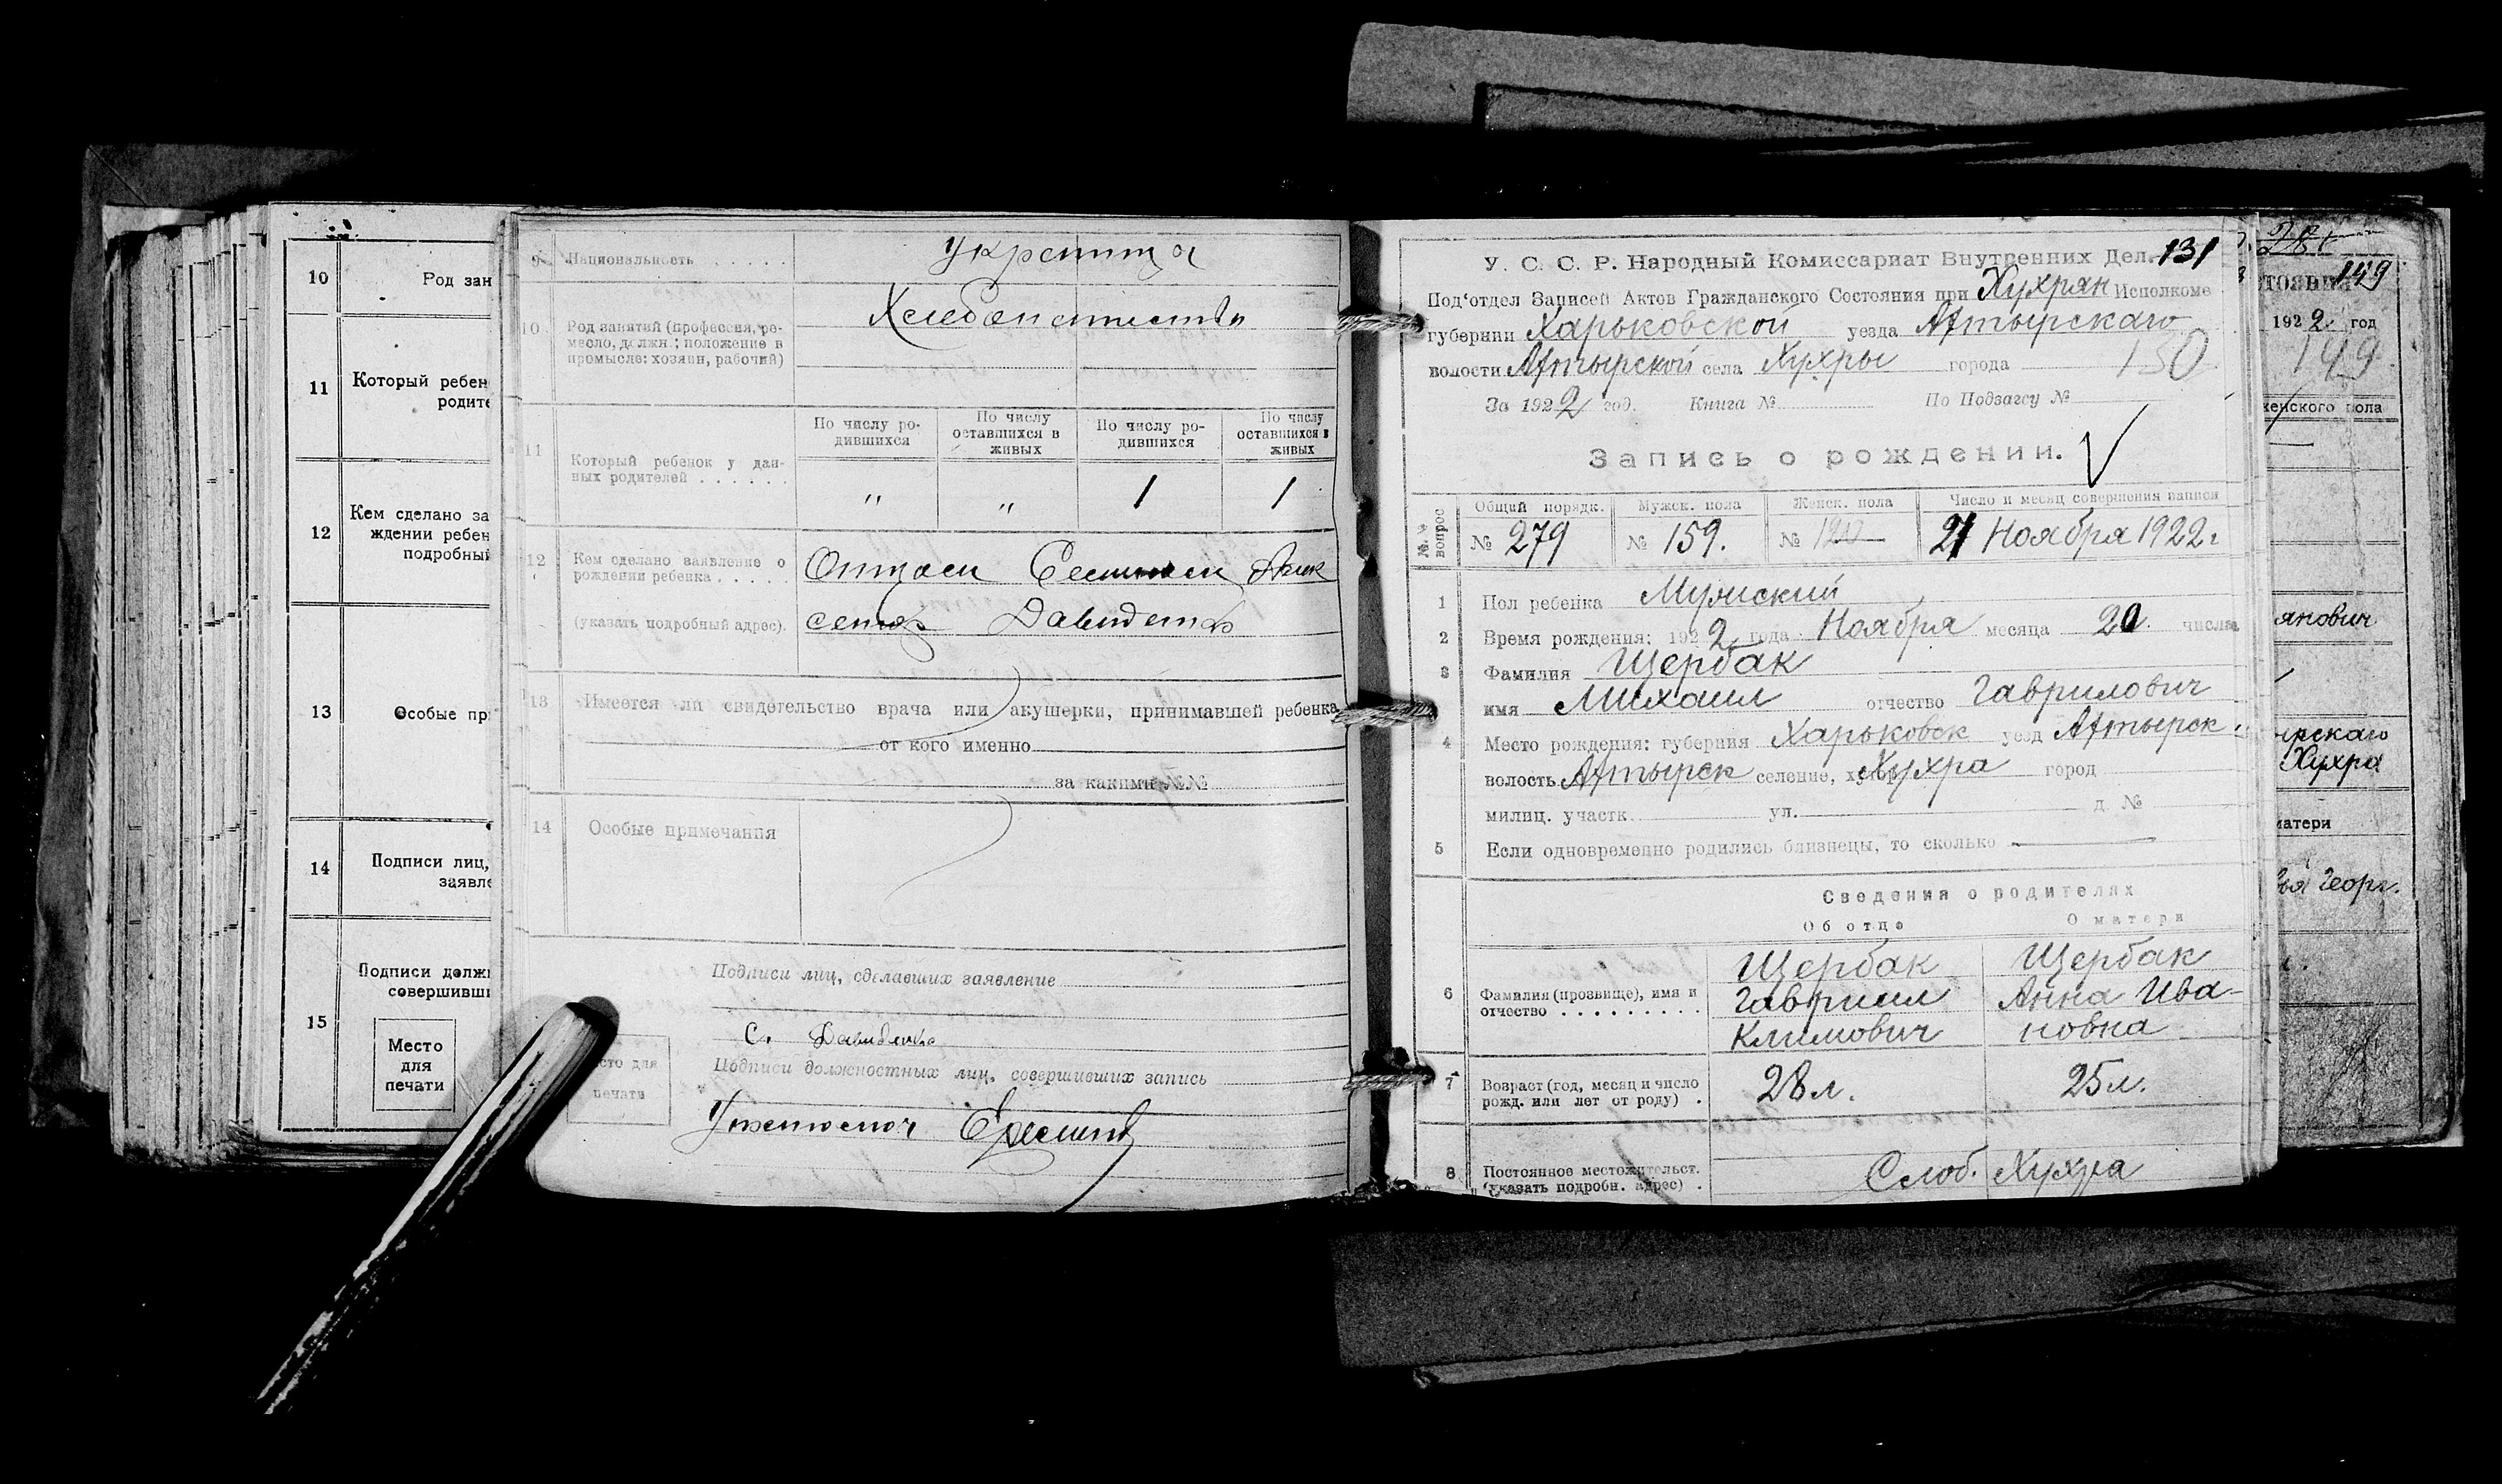 10
Род зан
11
Который ребен
родите
12
Кем сделано за
ждении ребен
подробный
13
Особые пр
14
Подписи лиц,
заявле
15
Подписи должн
совершивши
Место
для
печати
9 Национальность . . . . .
10. Род занятий (профессия, ре-
месло, должн.; положение в
промысле: хозяин, рабочий)
11
Который ребенок у дан-
ных родителей . . . . . .
По числу ро-
дившихся
По числу
оставшихся в
живых
По числу ро-
дившихся
По числу
оставшихся в
живых
" " 1 1
12 Кем сделано заявление о
рождении ребенка . . . . .
(указать подробный адрес).
Давиденко
13 Имеется ли свидетельство врача или акушерки, принимавшей ребенка
от кого именно
за какими №№
14 Особые примечания
Подписи лиц, сделавших заявление
С. Давиденко
Подписи должностных лиц, совершивших запись
сто для
печати
У. С. С. Р. Народный Комиссариат Внутренних Дел. 131
Под'отдел Записей Актов Гражданского Состояния при Хухрян Исполкоме
губернии Харьковской уезда Ахтырскаго
волости Ахтырской села Хухры города 130
За 1922 год. Книга № По Подзагсу №
Запись о рождении.
№№ вопрос
Общий порядк. Мужск. пола Женск. пола Число и месяц совершения записи
№ 279 № 159. № 120 21 Ноября 1922 г
1 Пол ребенка Мужский
2 Время рождения: 1922 года Ноября месяца 20 числа
3 Фамилия Щербак
имя Михаил отчество Гаврилович
4 Место рождения: губерния Харьковск уезд Ахтырск.
волость Ахтырск селение, хутор Хухра город
милиц. участк. ул. д. №
5 Если одновременно родились близнецы, то сколько
Сведения о родителях
Об отце О матери
6 Фамилия (прозвище), имя и
отчество . . . . . . . . .
Щербак
Гавриил
Климович
Щербак
Анна Ива-
новна
7 Возраст (год, месяц и число
рожд. или лет от роду) .
28 л. 25 л.
8 Постоянное местожительст.
(указать подробн. адрес) .
Слоб. Хухра
149
1922 год
149
женского пола
янович
ырскаго
Хухра
матери
Георг.